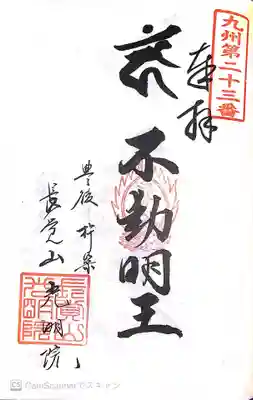 九州第二十三番
奉拝
不動明王
豊後杵築
長覚山 光明院
CS CamScannerでスキャン